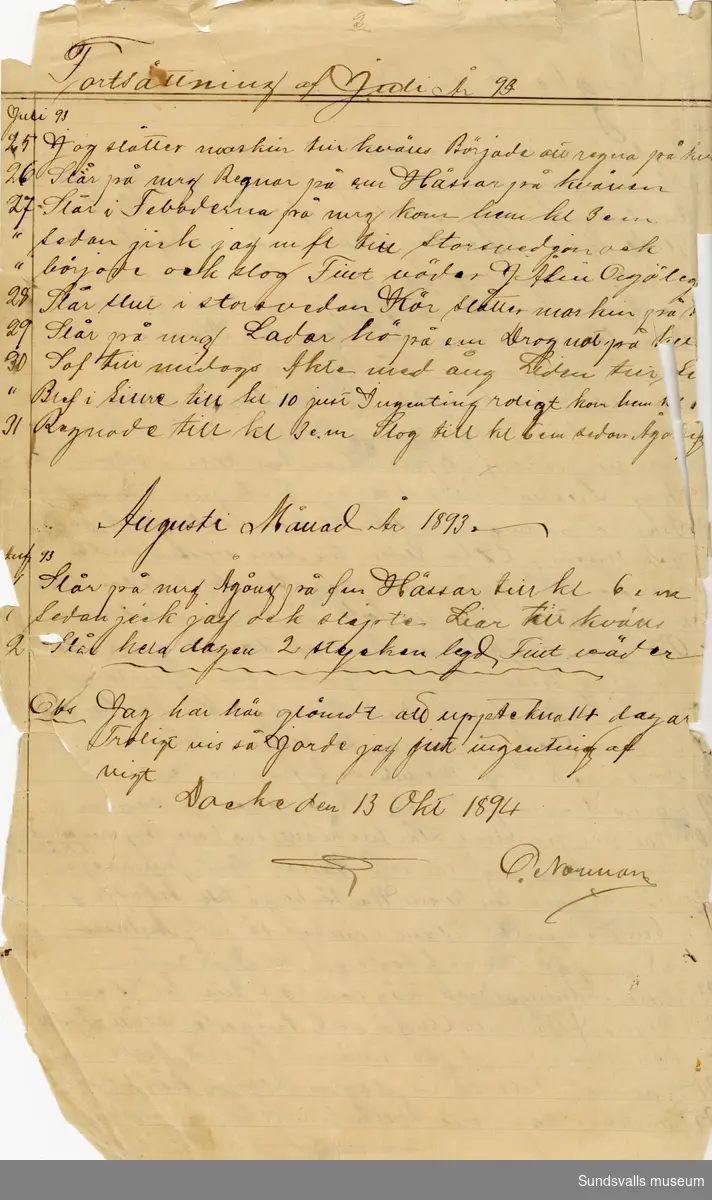 2
Fortsättning af Juli År 93
Juli 93
25 Jag slåtter maskin till kväns Började att regna på
26 Slår på mrg Regnar på em Hässar på kvänen
27 Slår i Febbderna på mrg kom hem kl 3 em
" sedan jick jag nift till Storsvedjon och
" började och slog Fint väder
28 Slår slut i storsvedan Kör slåtter maskin på
29 Slår på mrg Ladar hö på em Drog not på
30 Sof till midags Akte med ång Liden till
" Bref i till kl 10 just Ingenting roligt kom hem kl
31 Regnade till kl 3 e.m Slog till kl 6 em sedan
Augusti Månad År 1893.
93
1 Slår på mrg på fm Hässar till kl 6 em
sedan jick jag och slipte Liar till kväns
2 Slår hela dagen 2 stycken legd Fint väder
Obs Jag har här glömdt att uppteckna 14 dagar
Troligt vis så Jorde jag just ingenting af
vigt
Docksta den 13 Okt 1894
P. Norman
Sundsvalls museum